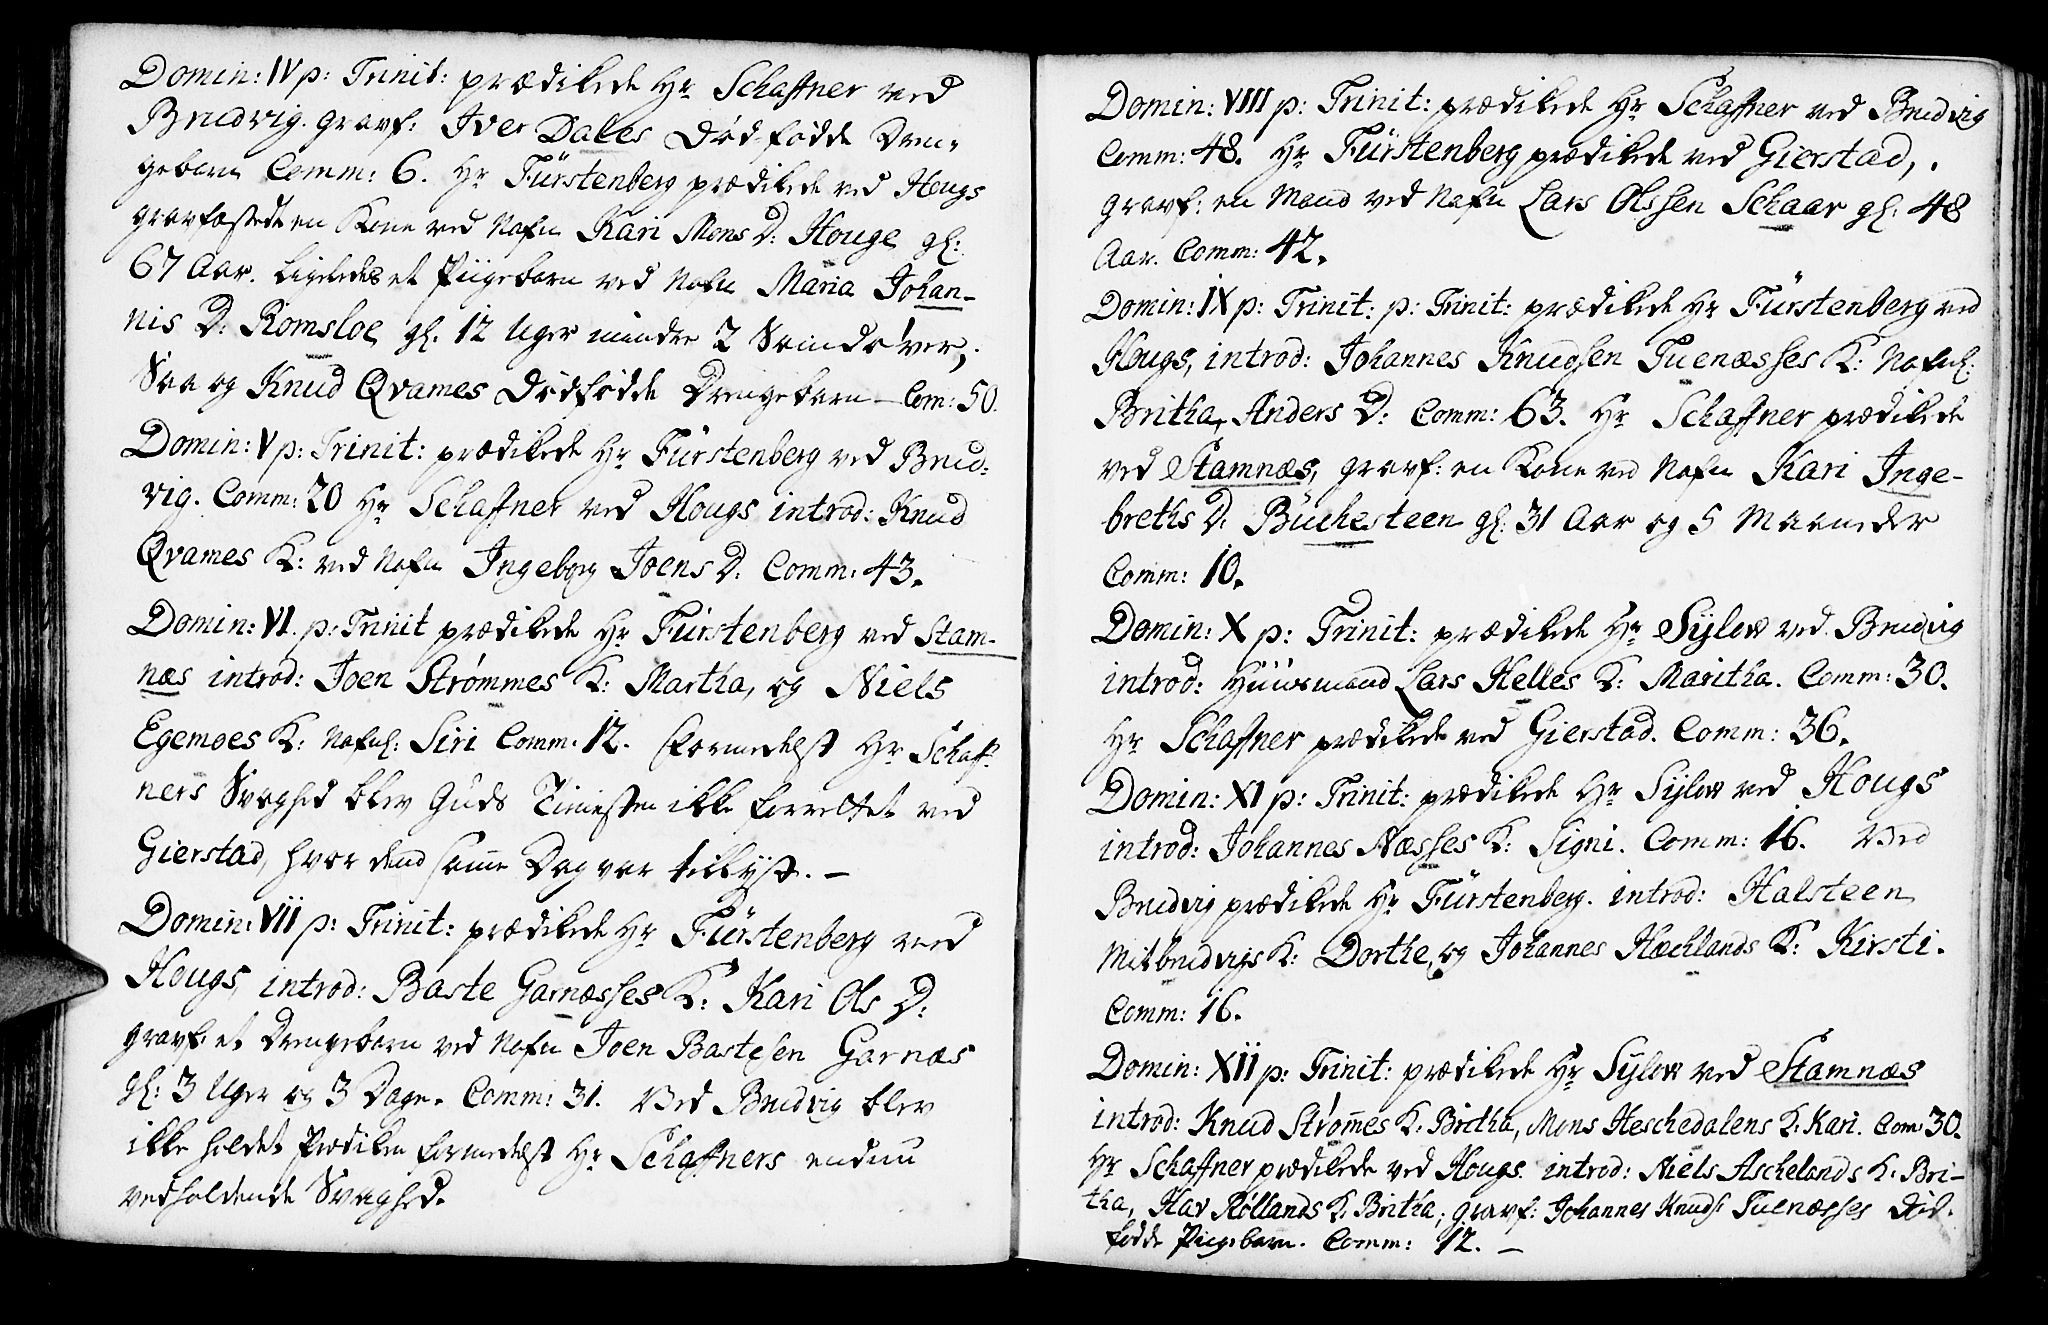 Domin: IV p: Trinit: prædikede Hr Schaffner ved
Brudvig. gravf: Iver Dales Dødfødde Dren-
gebarn Comm: 6. Hr Fürstenberg prædikede ved Hougs
gravfæstede en Kone ved Nafn Kari Mons D: Houge gl:
67 Aar. Ligeledes et Piigebarn ved Nafn Maria Johan-
nis D: Romsloe gl. 12 Uger mindre 2
Saa og Knud Qvames Dødfødde Drengebarn – Com: 50.
Domin: V p: Trinit: prædikede Hr Fürstenberg ved Brud-
vig. Comm: 20 Hr Schaffner ved Hougs introd: Knud
Qvames K: ved Nafn Ingeborg Joens D. Comm: 43.
Domin: VI. p: Trinit prædikede Hr Fürstenberg ved Stam-
næs introd: Joen Strømmes K: Martha, og Niels
Egemoes K: Nafnl: Siri Comm. 12. formedelst Hr Schaff-
ners Svaghed blev Guds Tienisten ikke forrettet ved
Gierstad, hvor dend samme Dag var tillyst. –
Domin: VII p: Trinit: prædikede Hr Fürstenberg ved
Hougs, introd: Baste Garnæsses K: Kari Ols D:
gravf: et Drengebarn ved Nafn Joen Bastesen Garnæs
gl: 3 Uger og 3 Dage. Comm: 31. Ved Brudvig blev
ikke holdet Prædiken formedelst Hr Schaffners endnu
vedholdende Svaghed.
Domin: VIII p: Trinit: prædikede Hr Schaffner ved Brudvig
Comm: 48. Hr Fürstenberg prædikede ved Gierstad,.
gravf: en Mand ved Nafn Lars Olssen Schaar gl. 48
Aar. Comm: 42.
Domin: IX p: Trinit: p: Trinit: prædikede Hr Fürstenberg ved
Hougs, introd: Johannes Knudsen Tuenæsses K: Nafnl:
Britha, Anders D: Comm: 63. Hr Schaffner prædikede
ved Stamnæs, gravf: en Kone ved Nafn Kari Inge-
breths D. Büchesteen gl: 31 Aar og 5 Maaneder
Comm: 10.
Domin: X p: Trinit: prædikede Hr Sylow ved Brudvig
introd: Huusmand Lars Helles K: Maritha. Comm: 30.
Hr Schaffner prædikede ved Gierstad. Comm: 36.
Domin: XI p: Trinit: prædikede Hr Sylow ved Hougs
introd: Johannes Næsses K: Signi. Comm: 16. Ved
Brudvig prædikede Hr Fürstenberg. introd: Halsteen
Mitbrudvigs K: Dorthe, og Johannes Hæchlands K: Kirsti.
Comm: 16.
Domin: XII p: Trinit: prædikede Hr Sylow ved Stamnæs
introd: Knud Strømmes K. Britha, Mons Heschedalens K. Kari. Com 30.
Hr Schaffner prædikede ved Hougs. introd: Niels Aschelands K. Bri-
tha, Hav Røllands K. Britha; gravf: Johannes Knuds: Tuenæsses død-
fødde Piigebarn. Comm: 12. –